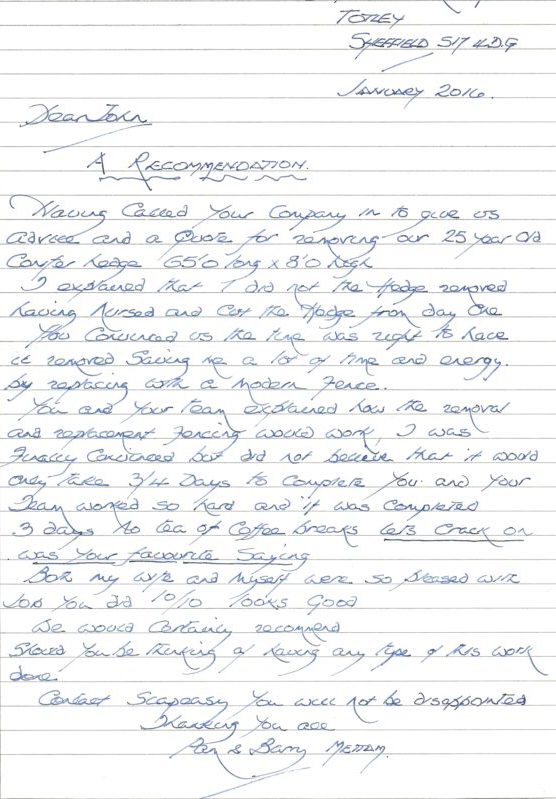 TOTLEY
SHEFFIELD S17 4DG
JANUARY 2016.
Dear John
A RECOMMENDATION.
Having Called Your Company in to give us
advice and a Quote for removing our 25 year old
Conifer hedge 65'0 long x 8'0 high
I explained that I did not the Hedge removed
having Nursed and Cut the Hedge from day one
You Convinced us the time was right to have
it removed Saving me a lot of time and energy.
by replacing with a Modern Fence.
You and Your team explained how the removal
and replacement Fencing would work, I was
Finally Convinced but did not believe that it would
only take 3/4 Days to Complete You and Your
Team worked so hard and it was Completed
3 days No tea of Coffee breaks let's Crack on
was Your favourite Saying
Both my wife and Myself were so pleased with
Job You did 10/10 looks Good
We would Certainly recommend
Should You be thinking of having any type of this work
done.
Contact Scapeasy You will not be disappointed
Thanking You all
& Barry METTAM.